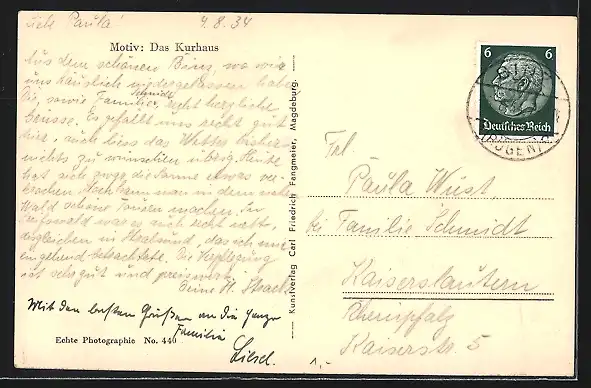 Liebe Paula! 9.8.34
Motiv: Das Kurhaus
Aus dem schönen Binz, wo wir
uns häuslich niedergelassen haben
Sie, sowie Familie Schmidt, recht herzliche
Grüsse. Es gefällt uns recht gut
hier, auch liess das Wetter bisher
nichts zu wünschen übrig. Heute
hat sich zwar die Sonne etwas ver-
krochen. Hochbann man in dem
Wald schöne Touren machen. In
Greifswald war es auch recht nett,
desgleichen in Stralsund, das ich mir
eingehend betrachtete. Die Verpflegung
ist sehr gut und preiswert.
Deine H.
Mit den besten Grüßen an die ganze
Familie
Liesel.
Echte Photographie No. 440
Kunstverlag Carl Friedrich Fangmeier, Magdeburg.
6 6
Deutsches Reich
BINZ
(RÜGEN)
Frl.
Paula Wüst,
bei Familie Schmidt
Kaiserslautern
Rheinpfalz
Kaiserstr. 5
1,-